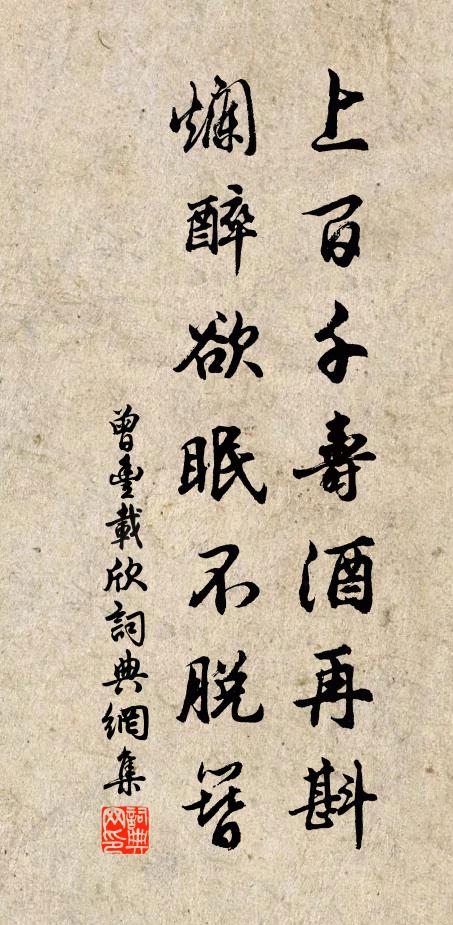 上百千壽酒再斟
爛醉欲眠不脫簪
曾豐載欣詞典網集
詞典網印